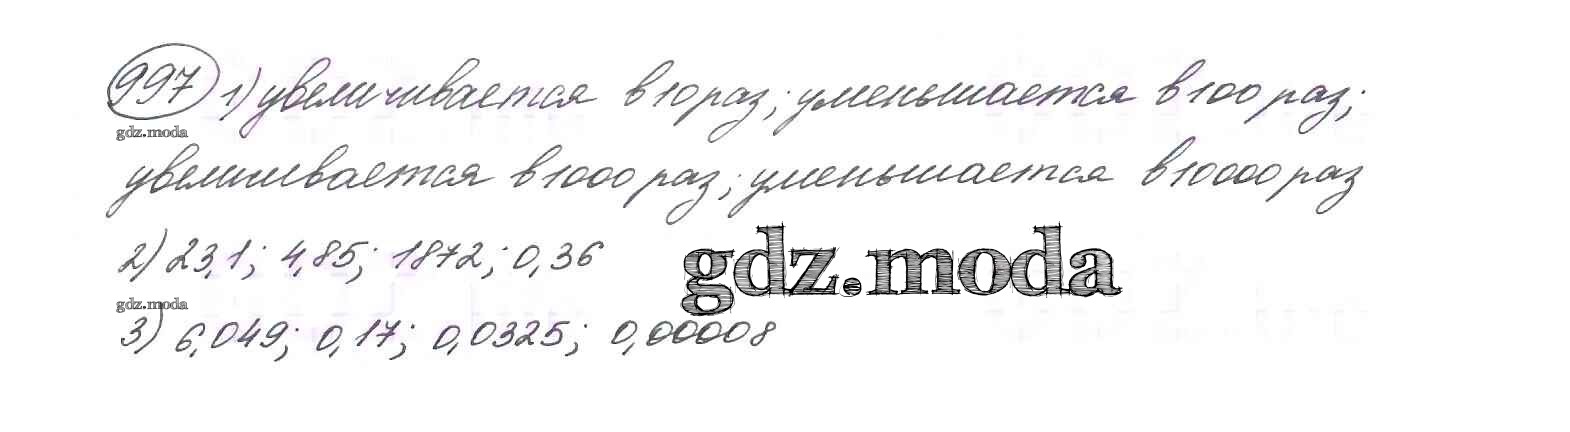 997 1) увеличивается в 10 раз; уменьшается в 100 раз;
gdz.moda
увеличивается в 1000 раз; уменьшается в 10000 раз
2) 23,1; 4,85; 1872; 0,36
gdz.moda
gdz.moda
3) 6,049; 0,17; 0,0325; 0,00008